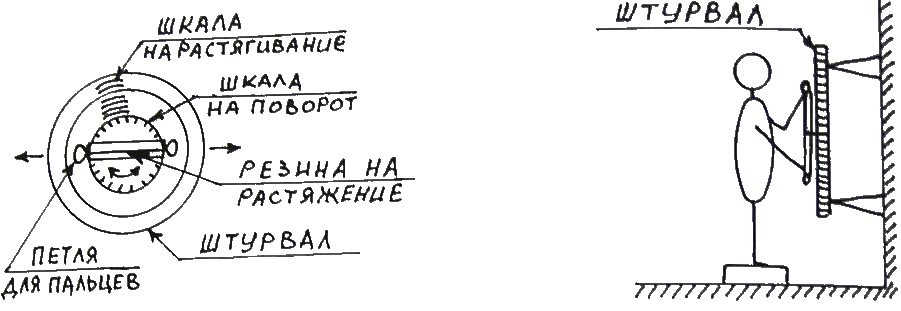 ШКАЛА
НА РАСТЯГИВАНИЕ
ШКАЛА
НА ПОВОРОТ
РЕЗИНА НА
РАСТЯЖЕНИЕ
ШТУРВАЛ
ПЕТЛЯ
ДЛЯ ПАЛЬЦЕВ
ШТУРВАЛ